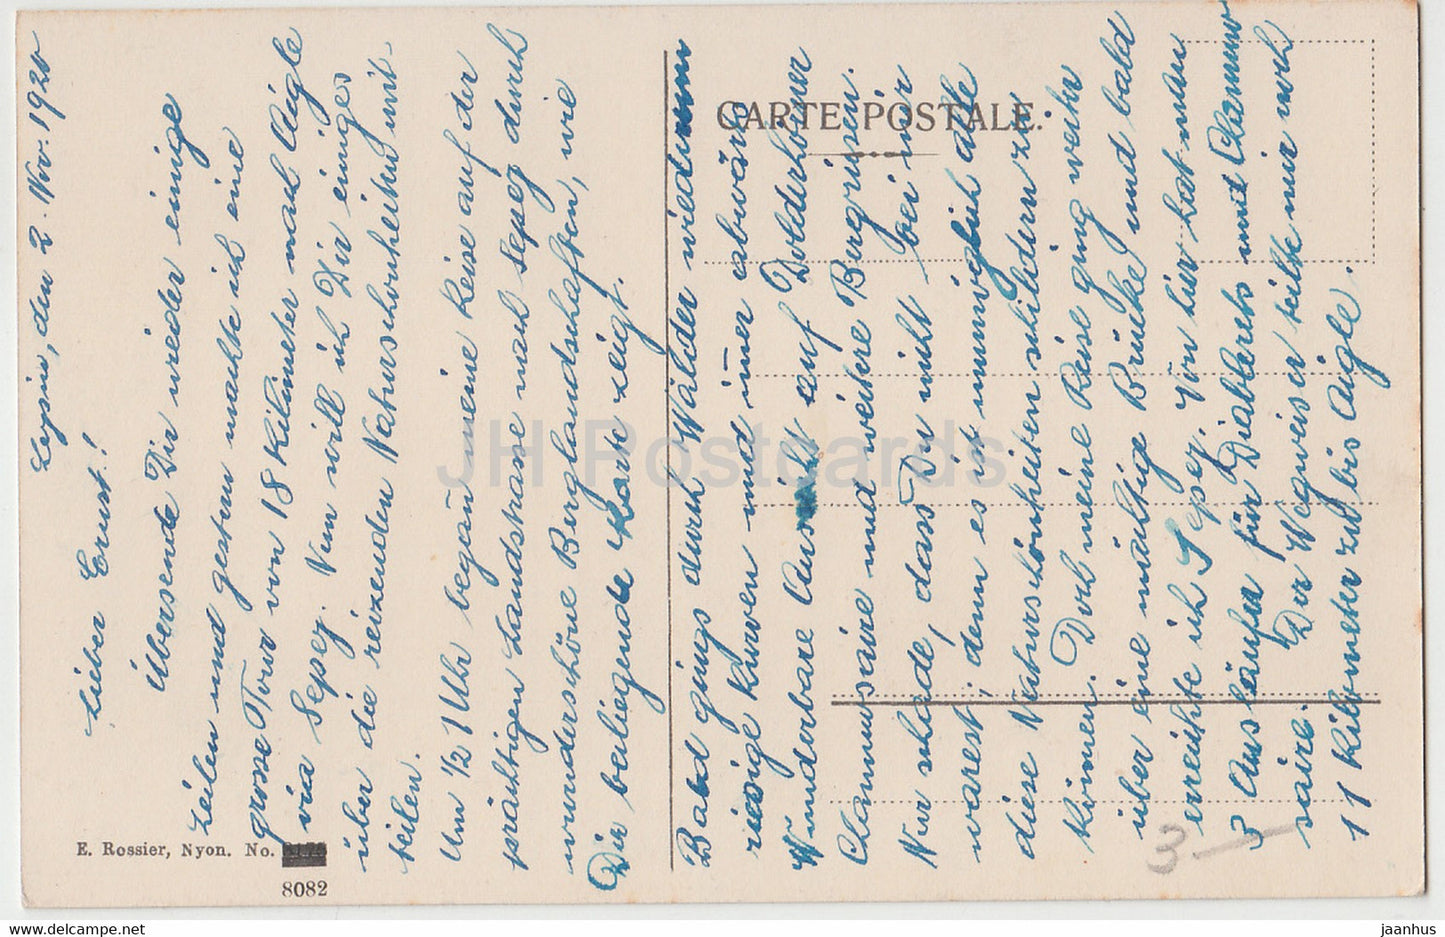 Leysin, den 2. Nov. 1920
Lieber Ernst!
Übersende Dir wieder einige
Zeilen und gestern machte ich eine
grosse Tour von 18 Kilimeter nach Aigle
via Sepej. Nun will ich Dir einiges
über die reizenden Naturschönheiten mit
teilen.
Um ½ 1 Uhr began̄ meine Reise auf der
prächtigen Landstrasse nach Sepej durch
wunderschöne Berglandschaften, wie
Dir beiliegende Karte zeigt.
CARTE POSTALE.
Bald gings durch Wälder wiederum
riesige Kurven und im̄er abwärts
Wunderbare Aussicht auf Dolderhorner
Chamussaire und weitere Bergriesen.
Nur schade, dass Du nicht bei mir
warest, denn es ist unmöglich alle
diese Naturschönheiten schildern zu
kön̄en. Doch meine Reise ging weiter
über eine mächtige Brücke und bald
erreichte ich Sepej. Von hier hat man
3 Ausläufer für Diablerets und Chamus
saire. Der Wegweiser teilte mir noch
11 Kilometer zu bis Aigle.
3 —
E. Rossier, Nyon. No.
8082
JH Postcards
www.hippostcard.com
jaanhus